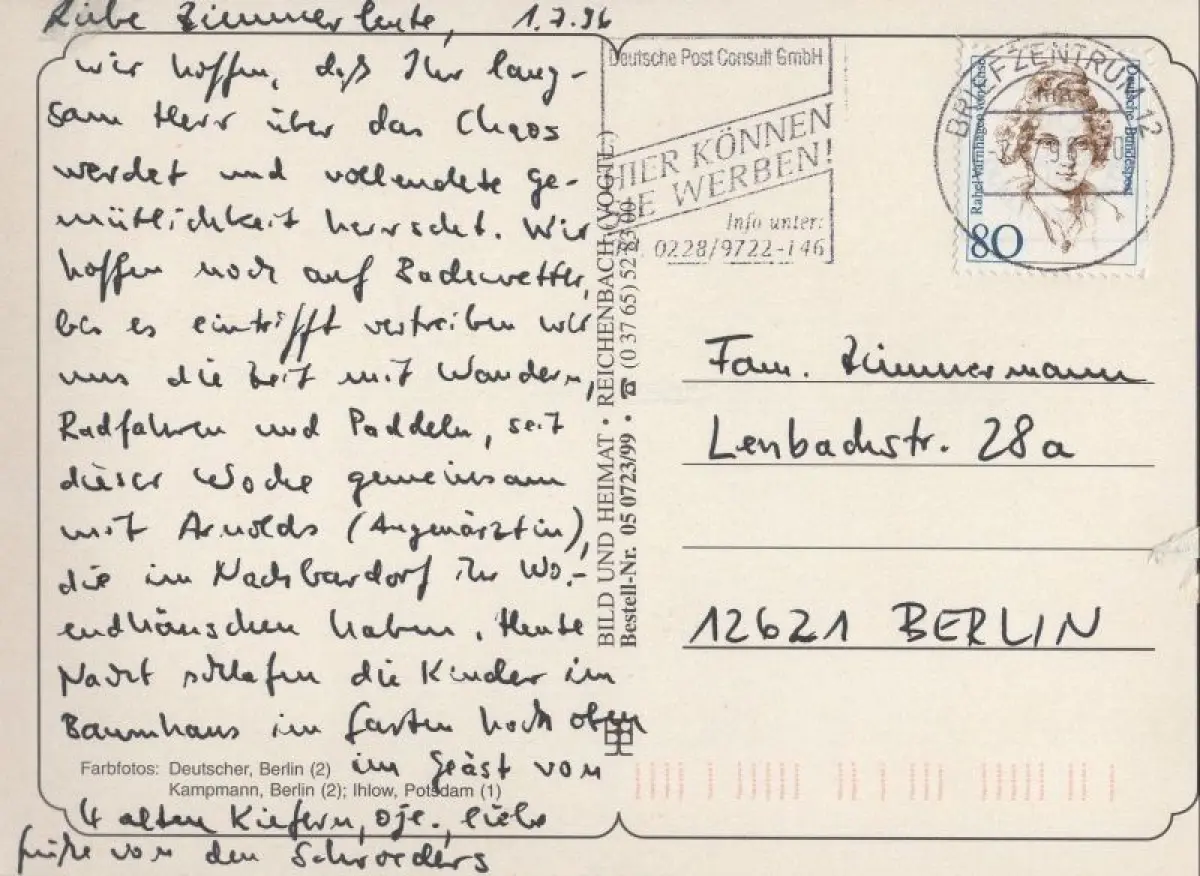 Liebe Zimmerleute, 1.7.96
wir hoffen, daß Ihr lang-
sam Herr über das Chaos
werdet und vollendete Ge-
mütlichkeit herrschet. Wir
hoffen noch auf Badewetter,
bis es eintrifft vertreiben wir
uns die Zeit mit Wandern,
Radfahren und Paddeln, seit
dieser Woche gemeinsam
mit Arnolds (Augenärztin),
die im Nachbardorf ihr Wo.-
endhäuschen haben. Heute
Nacht schlafen die Kinder im
Baumhaus im Garten hoch oben
im Geäst von
4 alten Kiefern, oje., liebe
Grüße von den Schroeders
Farbfotos: Deutscher, Berlin (2)
Kampmann, Berlin (2); Ihlow, Potsdam (1)
BILD UND HEIMAT • REICHENBACH (VOGTL.)
Bestell-Nr. 05 0723/99 • ☎ (0 37 65) 52 83 00
Deutsche Post Consult GmbH
HIER KÖNNEN
SIE WERBEN!
Info unter:
0228/9722-146
BRIEFZENTRUM 12
Rahel Varnhagen von Ense
Deutsche Bundespost
80
Fam. Zimmermann
Lenbachstr. 28a
12621 BERLIN